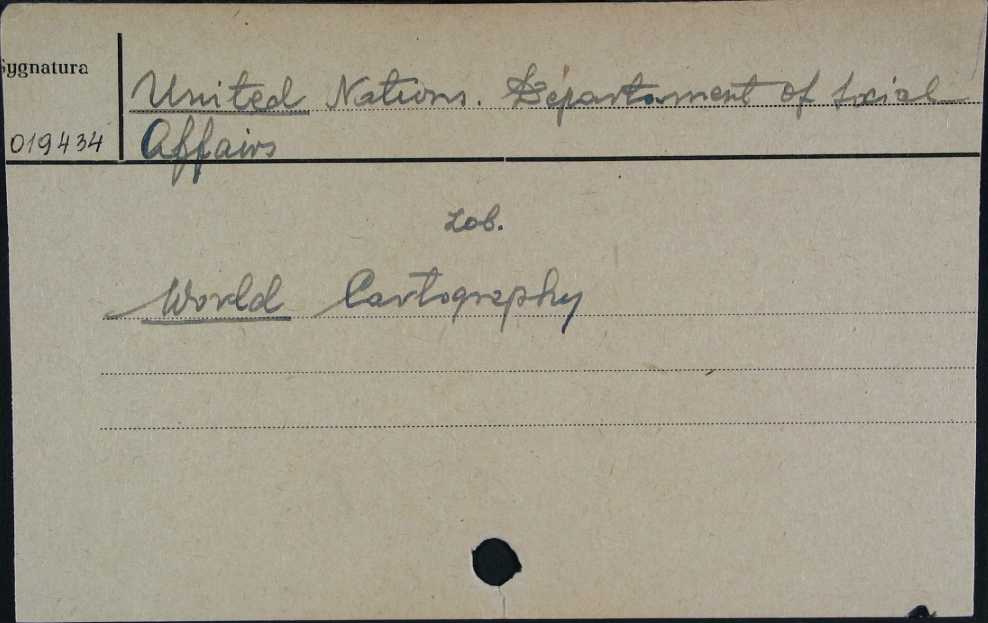 Sygnatura
United Nations. Départament of Social
019434
Affairs
zob.
World Cartography